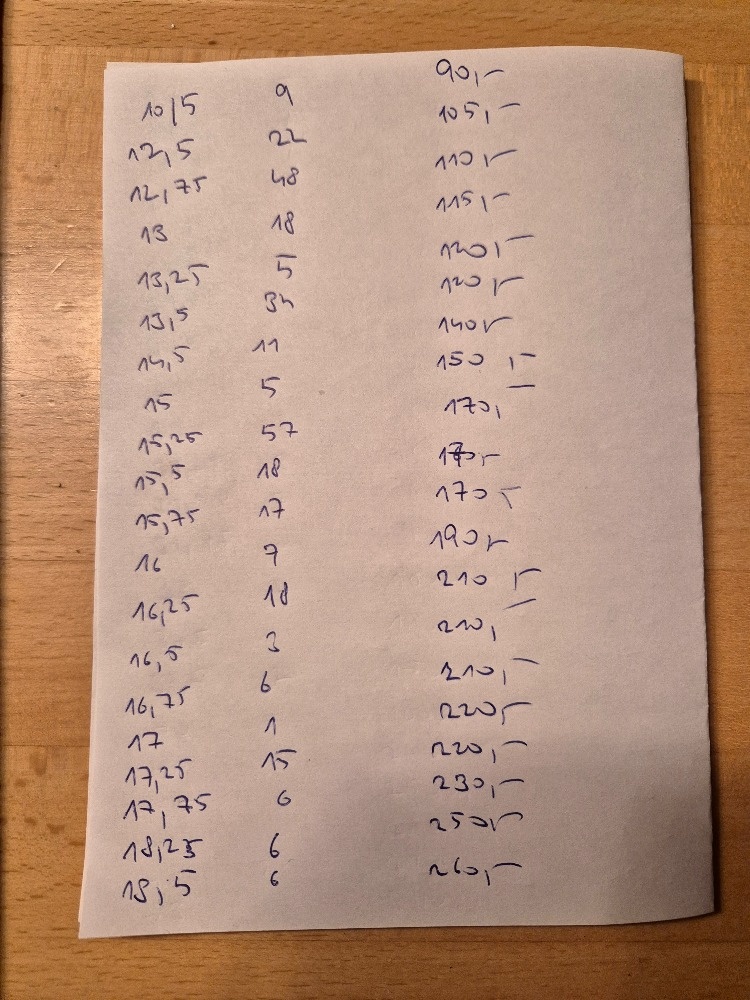 10,5 9 90,-
12,5 22 105,-
12,75 48 110,-
13 18 115,-
13,25 5 120,-
13,5 34 120,-
14,5 11 140,-
15 5 150,-
15,25 57 170,-
15,5 18 170,-
15,75 17 170,-
16 7 190,-
16,25 18 210,-
16,5 3 210,-
16,75 6 210,-
17 1 220,-
17,25 15 220,-
17,75 6 230,-
18,25 6 250,-
18,5 6 260,-